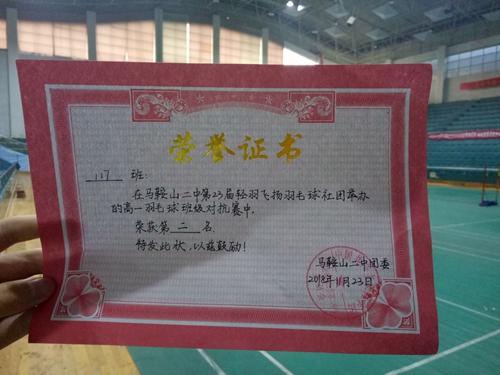 荣誉证书
117 班:
在马鞍山二中第23届轻羽飞扬羽毛球社团举办
的高一羽毛球班级对抗赛中,
荣获第二名
特发此状,以兹鼓励!
马鞍山二中团委
2018年11月23日